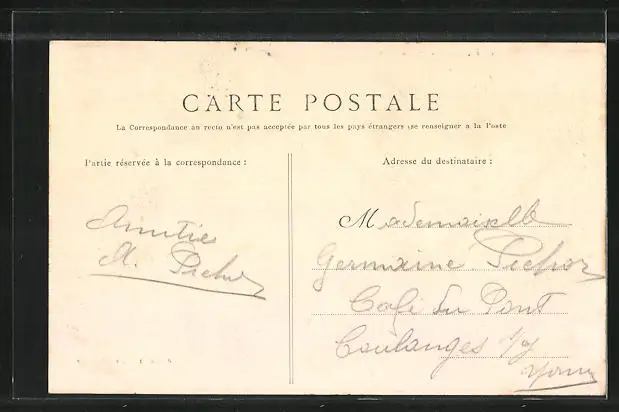 CARTE POSTALE
La Correspondance au recto n'est pas acceptée par tous les pays étrangers (se renseigner a la Poste
Partie réservée à la correspondance :
Adresse du destinataire :
Amitiés
A.
Mademoiselle
Germaine
Café du Pont
Coulanges s/y
Yonne